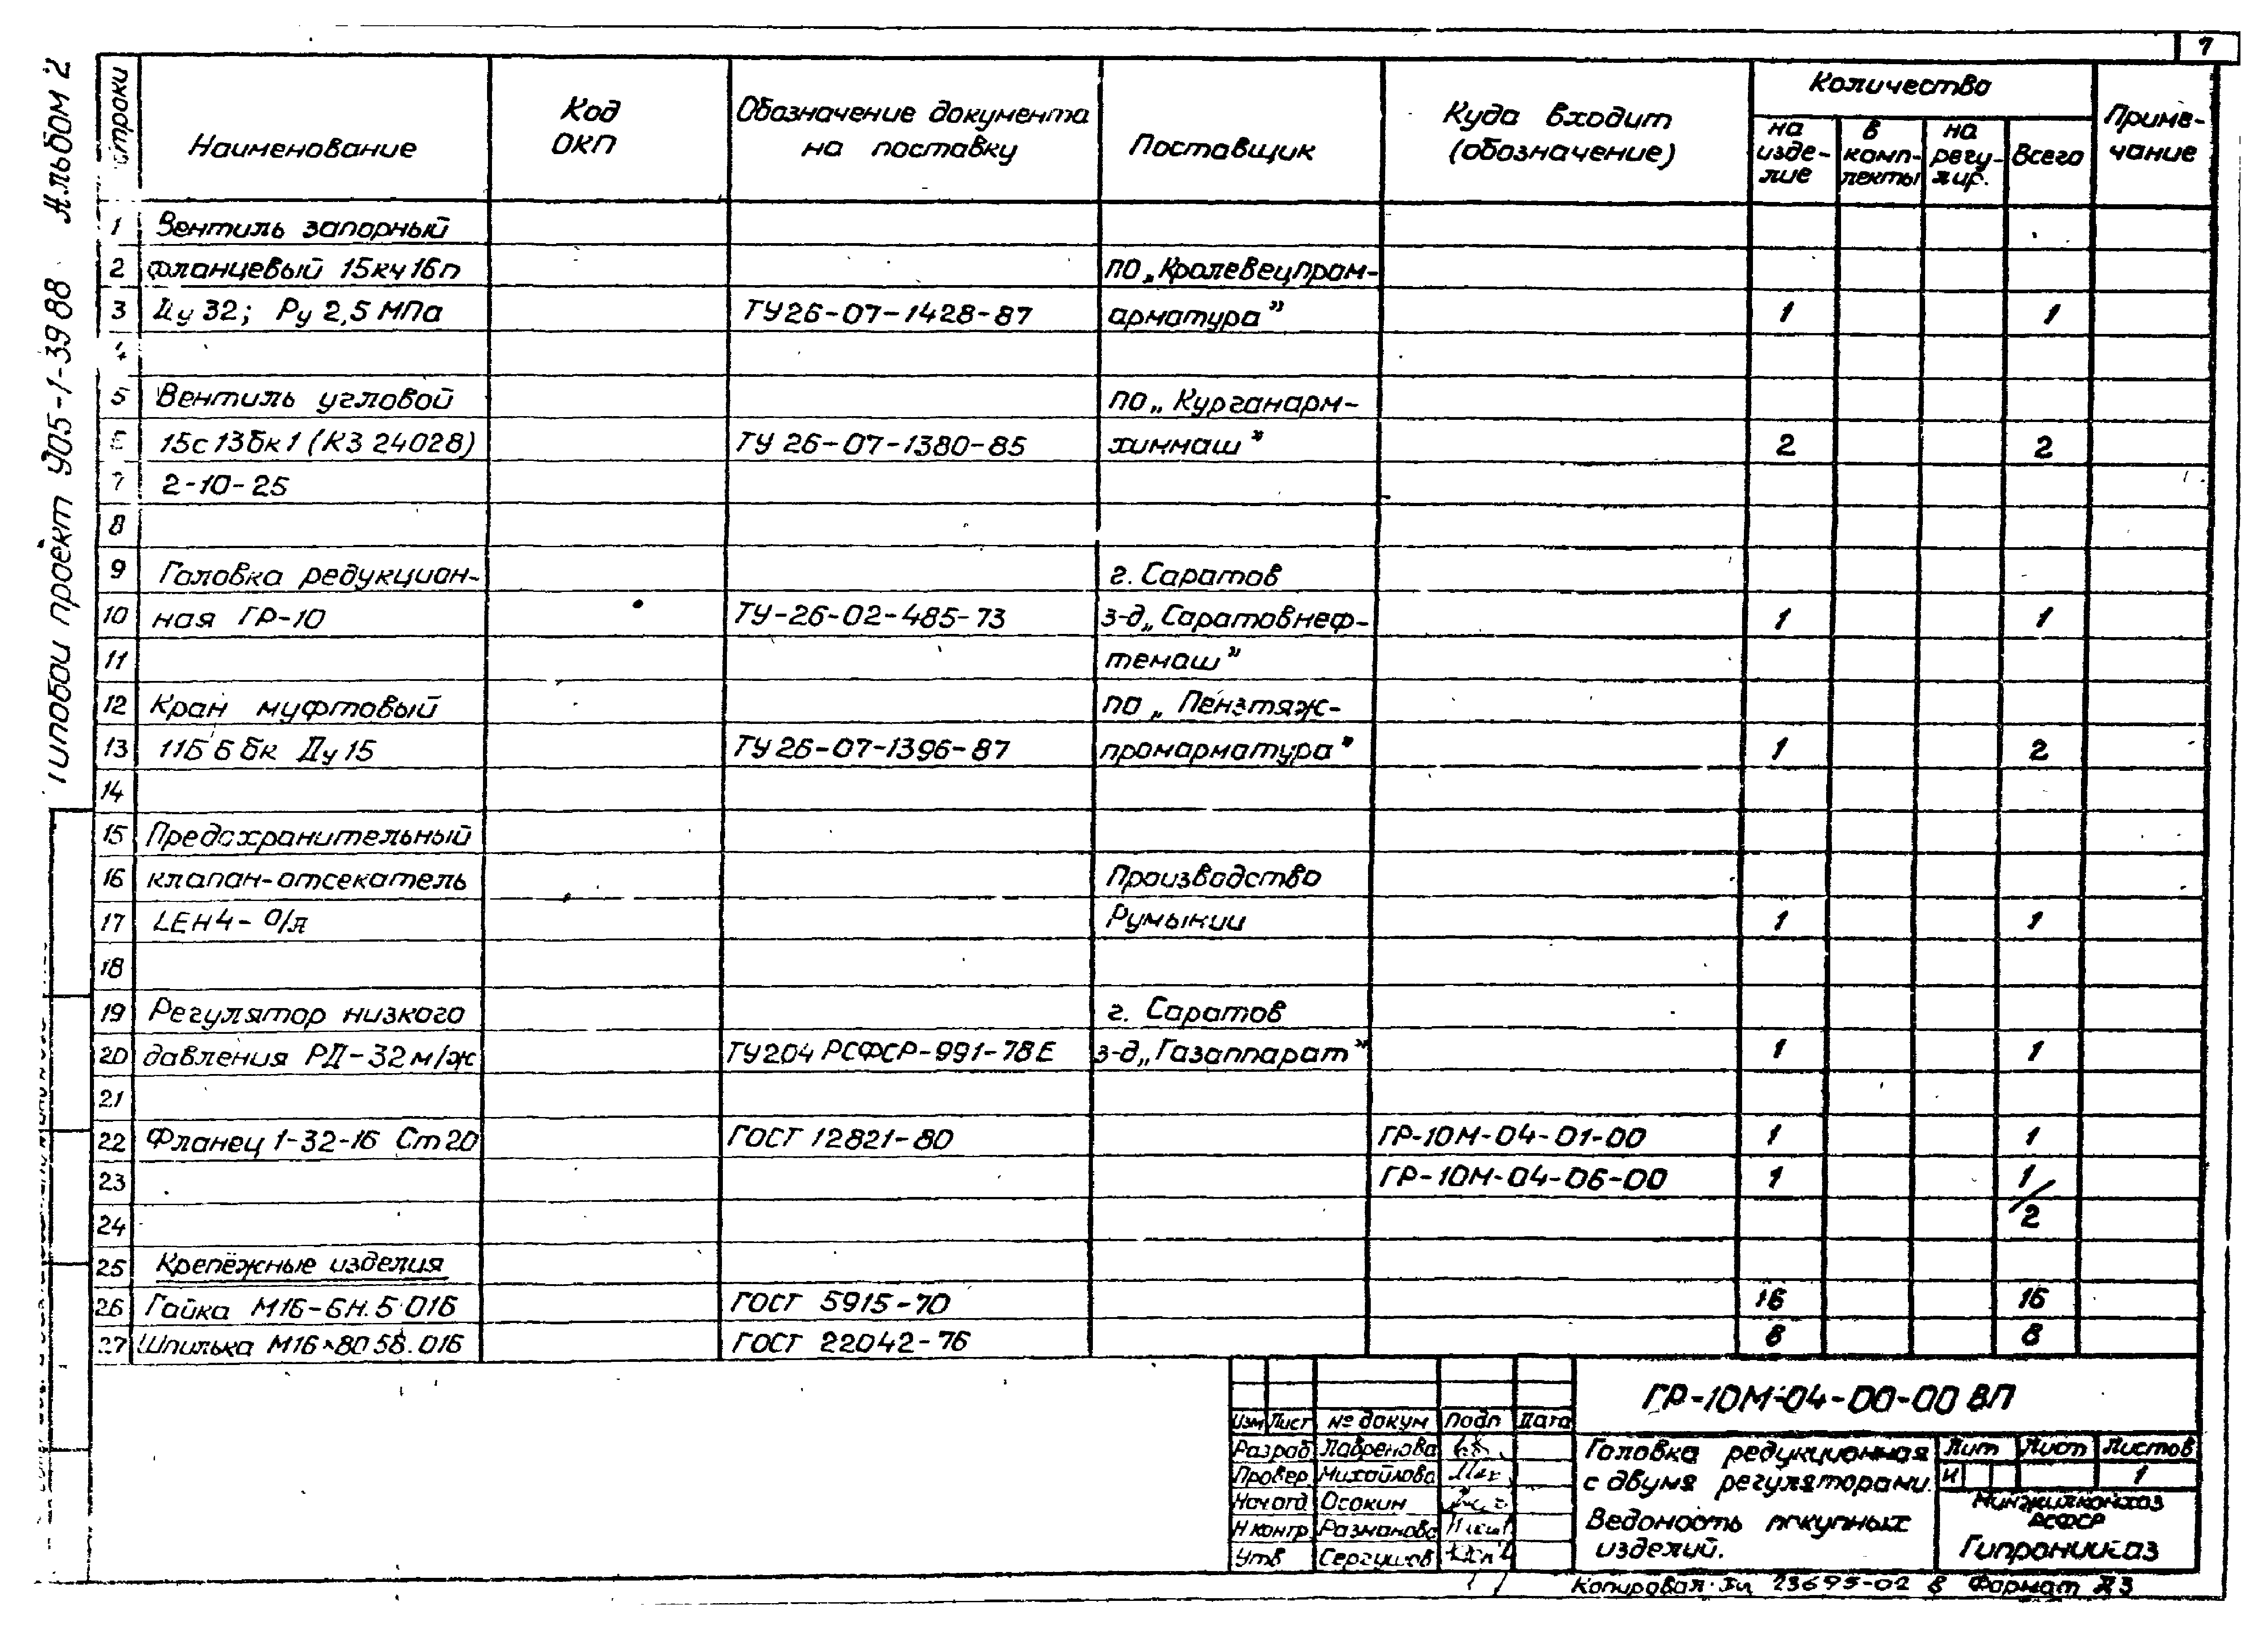 7
Альбом 2
Типовой проект 905-1-39 88
№ строки
Наименование
Код
ОКП
Обозначение документа
на поставку
Поставщик
Куда входит
(обозначение)
Количество
на
изде-
лие
в
комп-
лекты
на
регу-
лир.
Всего
Приме-
чание
1 Вентиль запорный
2 фланцевый 15кч16п ПО „Кролевецпром-
3 Ду 32; Ру 2,5 МПа ТУ26-07-1428-87 арматура” 1 1
4
5 Вентиль угловой ПО „Курганарм-
6 15с13бк1 (КЗ 24028) ТУ 26-07-1380-85 химмаш” 2 2
7 2-10-25
8
9 Головка редукцион- г. Саратов
10 ная ГР-10 ТУ-26-02-485-73 з-д „Саратовнеф-
1 1
11 темаш”
12 Кран муфтовый ПО „Пензтяж-
13 11Б6бк Ду15 ТУ26-07-1396-87 промарматура” 1 2
14
15 Предохранительный
16 клапан-отсекатель Производство
17 LEH4-0/л Румынии 1 1
18
19 Регулятор низкого г. Саратов
20 давления РД-32м/ж ТУ204 РСФСР-991-78Е з-д „Газаппарат” 1 1
21
22 Фланец 1-32-16 Ст20 ГОСТ 12821-80 ГР-10М-04-01-00 1 1
23 ГР-10М-04-06-00 1 1/
24 2
25 Крепёжные изделия
26 Гайка М16-6Н.5.016 ГОСТ 5915-70 16 16
27 Шпилька М16×80.58.016 ГОСТ 22042-76 8 8
ГР-10М-04-00-00 ВП
Изм Лист № докум Подп Дата
Разраб Лавренова
Провер Михайлова
Нач отд Осокин
Н контр Разманова
Утв Сергушов
Головка редукционная
с двумя регуляторами.
Ведомость покупных
изделий.
Лит Лист Листов
И 1
Минжилкомхоз
РСФСР
Гипрониигаз
Копировал 23695-02 8 Формат А3